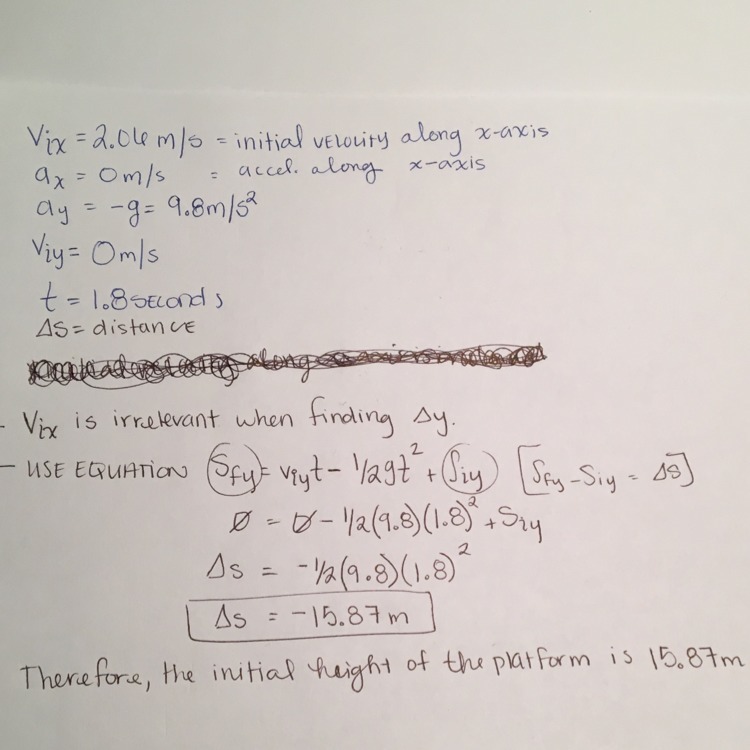 Vix = 2.06 m/s = initial velocity along x-axis
ax = 0m/s = accel. along x-axis
ay = -g = 9.8m/s²
Viy = 0m/s
t = 1.8 seconds
Δs = distance
- Vix is irrelevant when finding Δy.
- USE EQUATION Sfy = viyt - 1/2gt² + Siy [Sfy - Siy = Δs]
0 = 0 - 1/2(9.8)(1.8)² + Siy
Δs = -1/2(9.8)(1.8)²
Δs = -15.87m
Therefore, the initial height of the platform is 15.87m